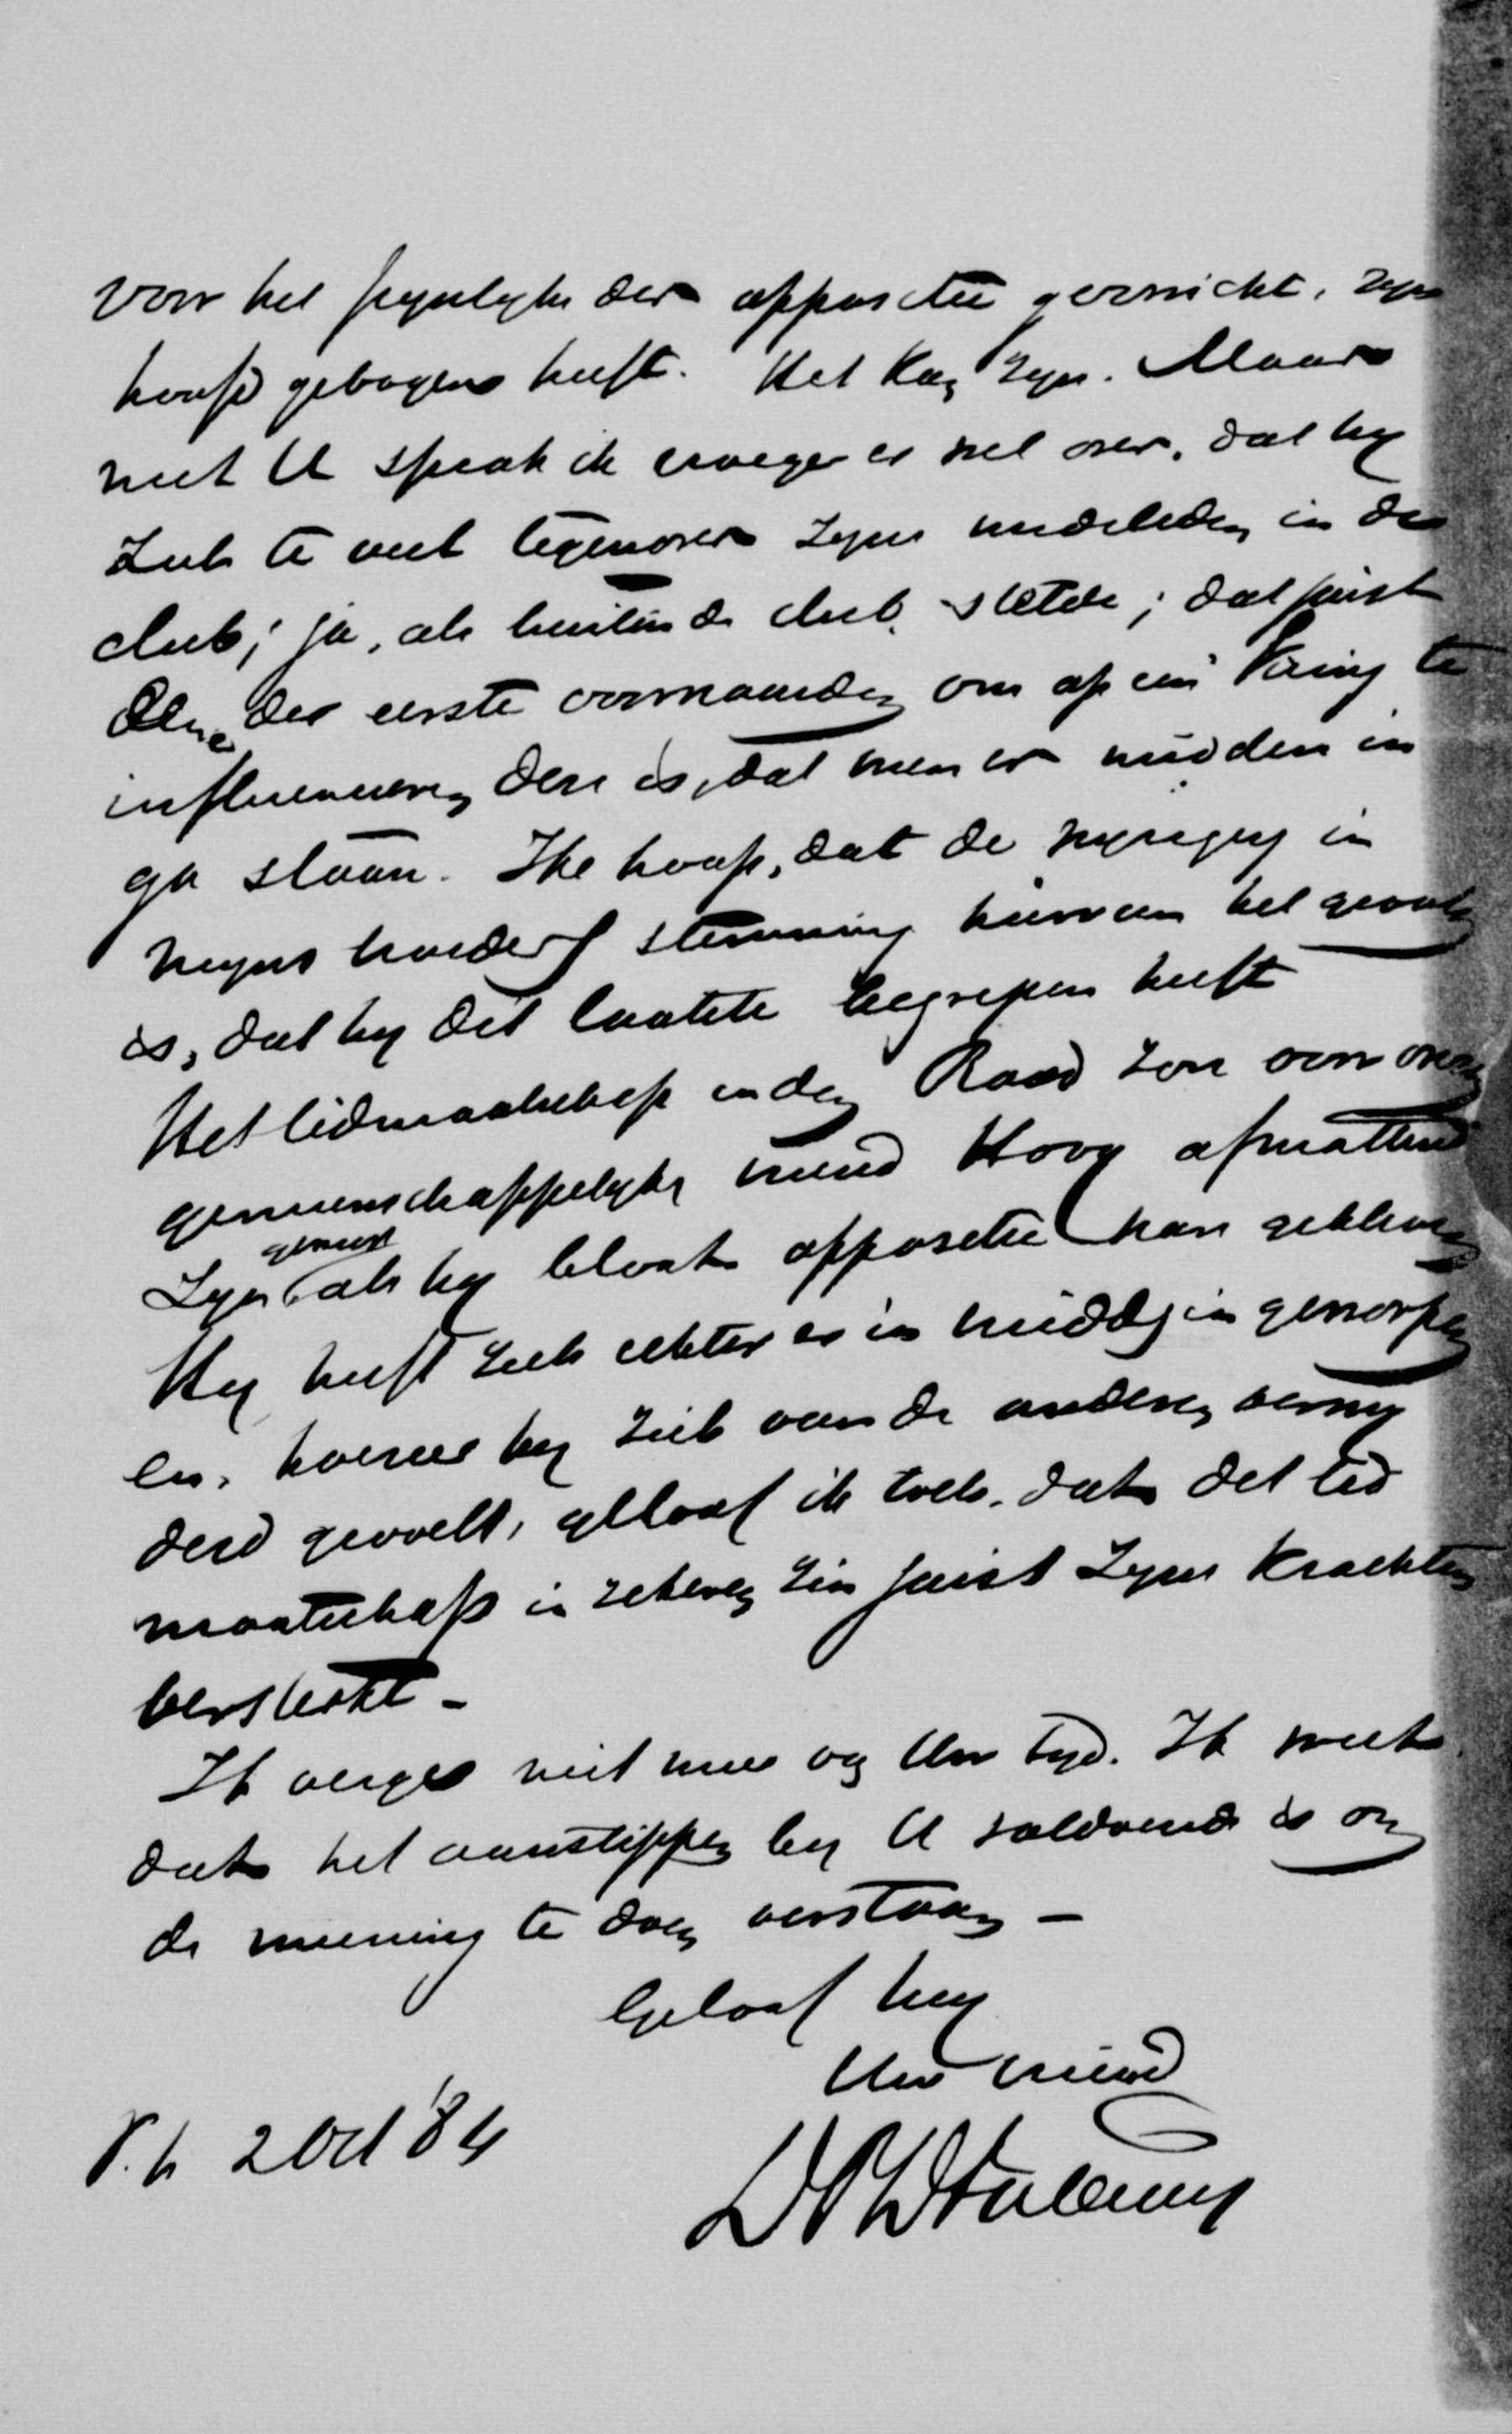 voor het pynlyke der oppositie gezwicht, zyn
hoofd gebogen heeft. Het kan zyn. Maar
met U sprak ik vroeger er wel over, dat hy
zich te veel tegenover zyne medeleden in de
club; ja, als buiten de club stelde; dat juist
eene der eerste voorwaarden om op een kring te
influenceren deze is, dat men er midden in
ga staan. Ik hoop, dat de wyziging in
myns broeders stemming hiervan het gevolg
is, dat hy dit laatste begrepen heeft
Het lidmaatschap in den Raad zou voor onzen
gemeenschappelyken vriend Hovy afmattend
zyn geweest als hy bloot oppositie had
Hy heeft zich echter er in midden in geworpen
en, hoezeer hy zich van de anderen
gevoelt, geloof ik toch, dat dit lid
maatschap in zekeren zin juist zyne krachten
versterkt -
Ik verg niet meer van Uw tyd. Ik weet
dat het aanstippen by U voldoende is om
de meening te doen verstaan -
Geloof my
Uw vriend
2 Oct '84